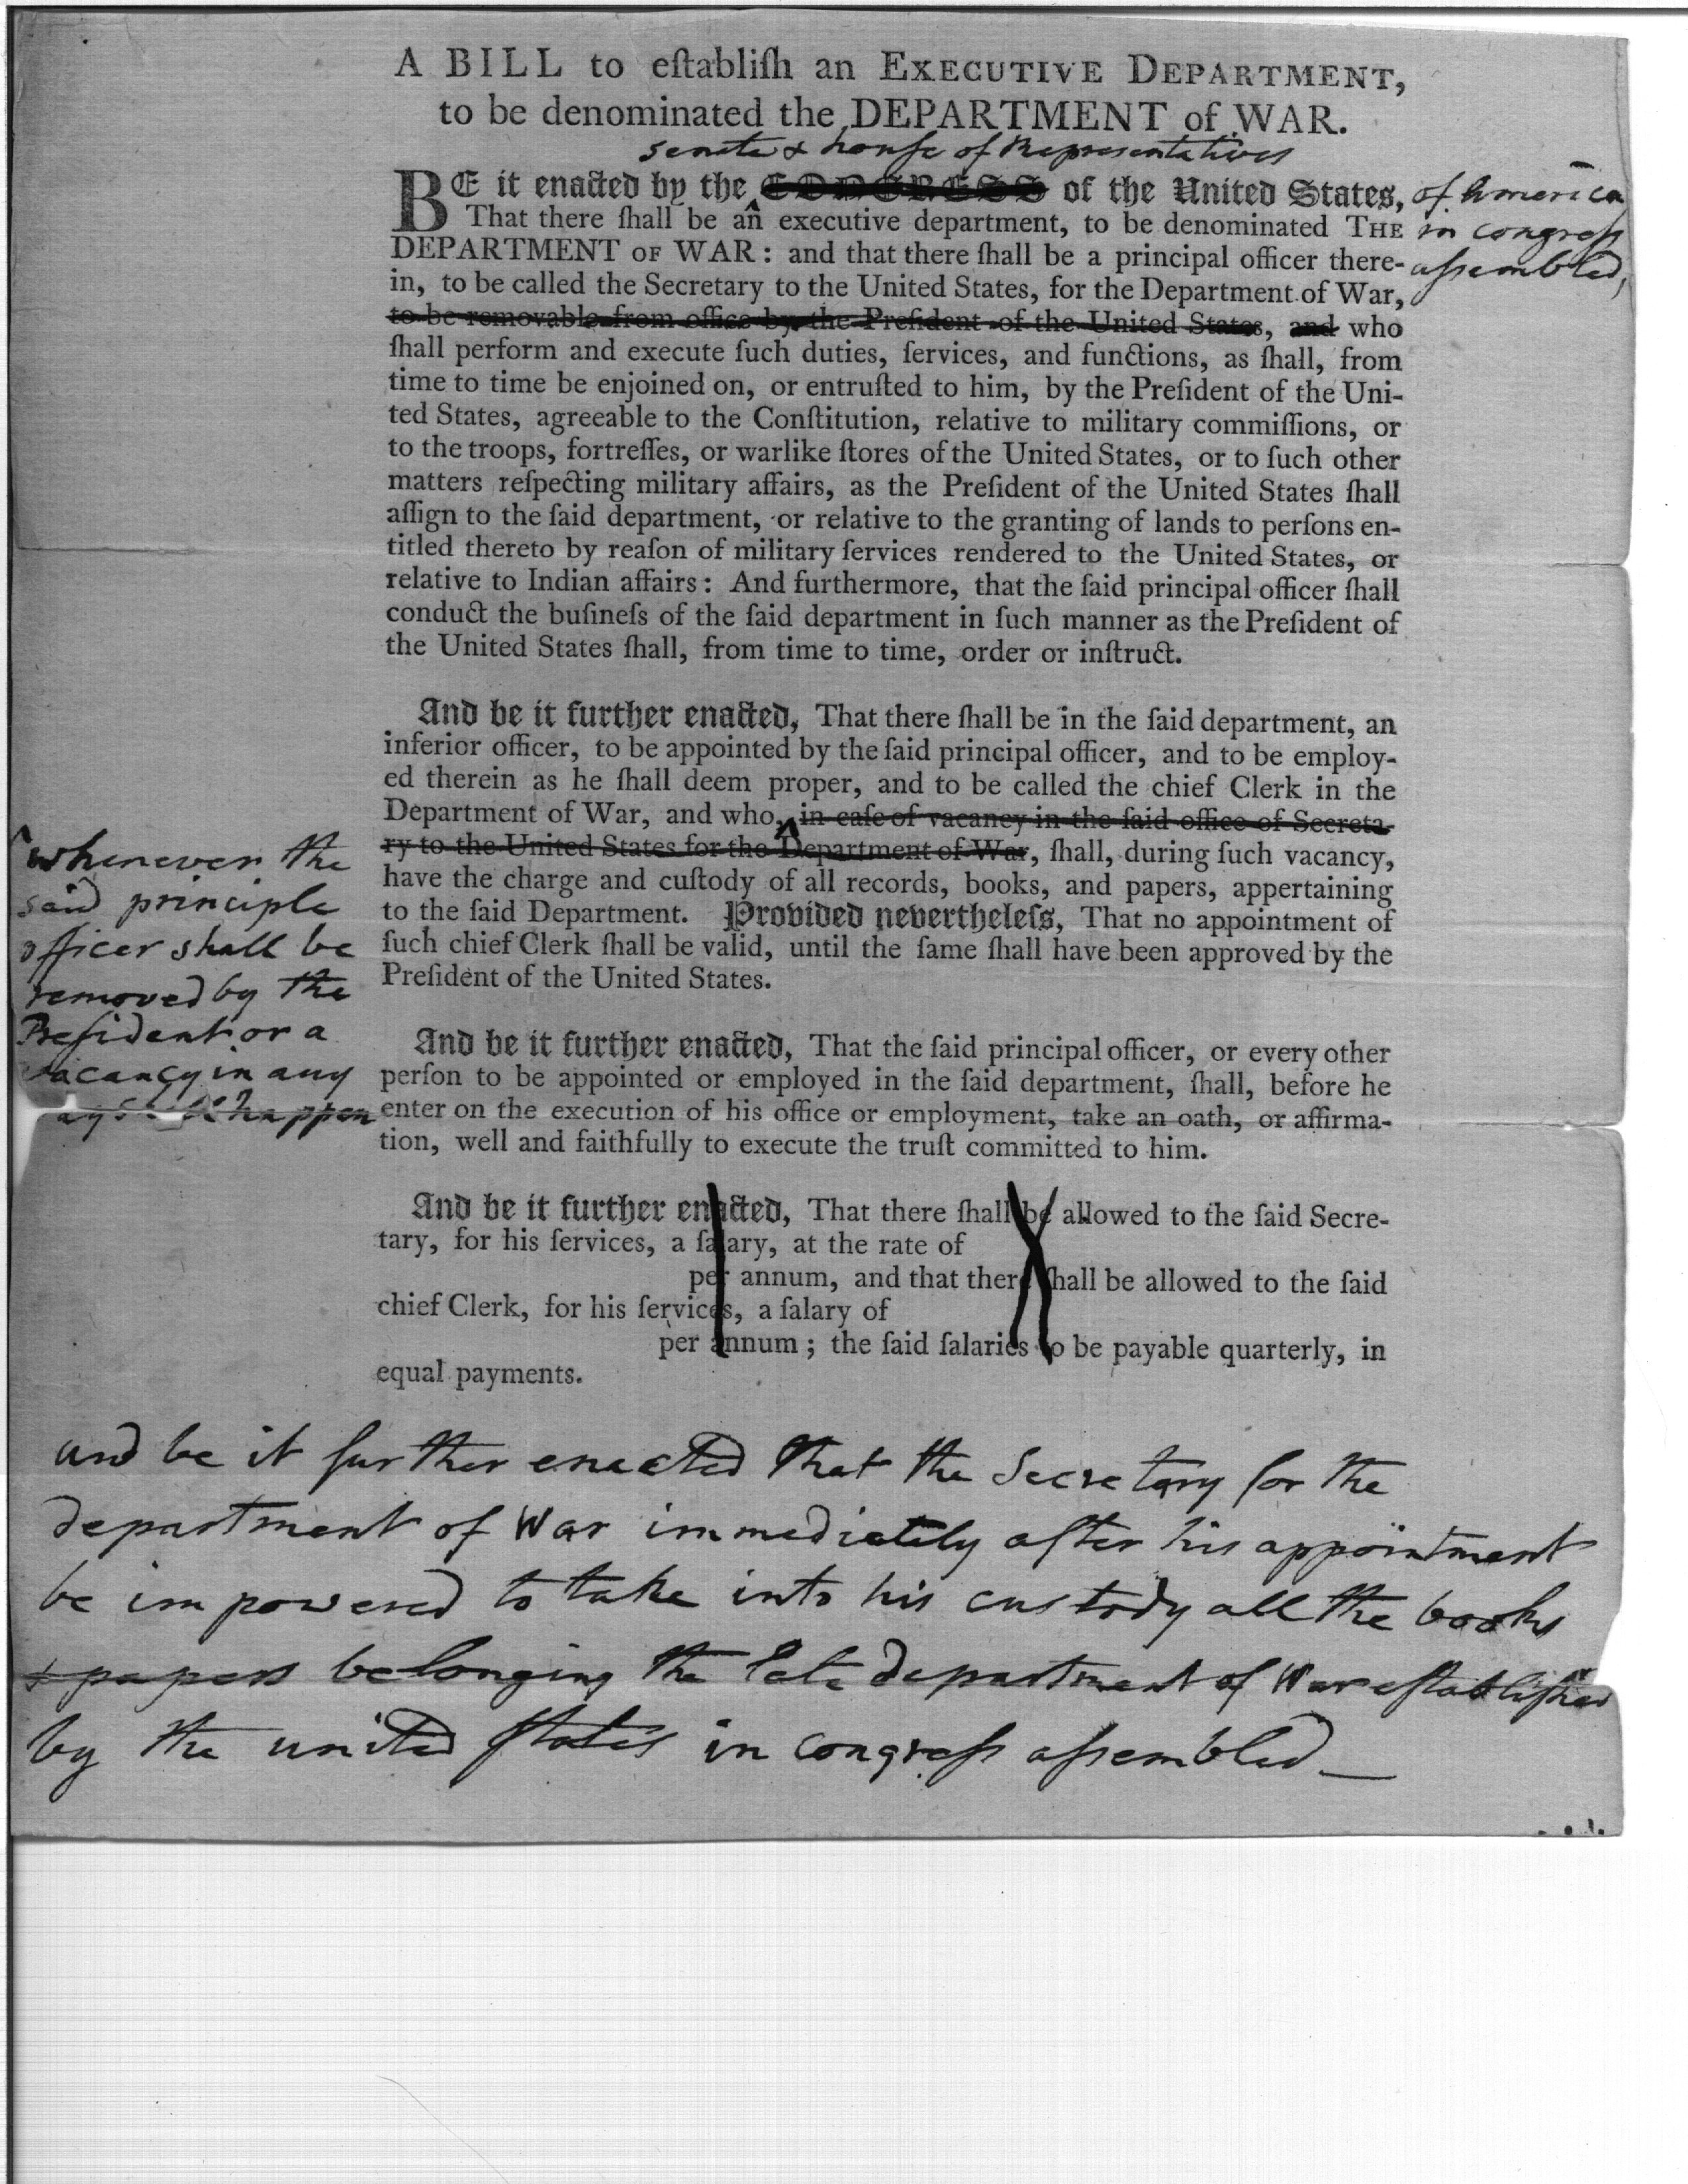 A BILL to eſtabliſh an EXECUTIVE DEPARTMENT,
to be denominated the DEPARTMENT of WAR.
senate & houſe of Representatives
BE it enacted by the CONGRESS of the United States, of America
That there ſhall be an executive department, to be denominated THE in congreſs
DEPARTMENT OF WAR: and that there ſhall be a principal officer there- aſsembled,
in, to be called the Secretary to the United States, for the Department of War,
to be removable from office by the Preſident of the United States, and who
ſhall perform and execute ſuch duties, ſervices, and functions, as ſhall, from
time to time be enjoined on, or entruſted to him, by the Preſident of the Uni-
ted States, agreeable to the Conſtitution, relative to military commiſſions, or
to the troops, fortreſſes, or warlike ſtores of the United States, or to ſuch other
matters reſpecting military affairs, as the Preſident of the United States ſhall
aſſign to the ſaid department, or relative to the granting of lands to perſons en-
titled thereto by reaſon of military ſervices rendered to the United States, or
relative to Indian affairs: And furthermore, that the ſaid principal officer ſhall
conduct the buſineſs of the ſaid department in ſuch manner as the Preſident of
the United States ſhall, from time to time, order or inſtruct.
And be it further enacted, That there ſhall be in the ſaid department, an
inferior officer, to be appointed by the ſaid principal officer, and to be employ-
ed therein as he ſhall deem proper, and to be called the chief Clerk in the
Department of War, and who, in caſe of vacancy in the ſaid office of Secreta-
ry to the United States for the Department of War, ſhall, during ſuch vacancy,
have the charge and cuſtody of all records, books, and papers, appertaining
to the ſaid Department. Provided nevertheleſs, That no appointment of
ſuch chief Clerk ſhall be valid, until the ſame ſhall have been approved by the
Preſident of the United States.
whenever the
said principle
officer shall be
removed by the
Preſident or a
vacancy in any
happen
And be it further enacted, That the ſaid principal officer, or every other
perſon to be appointed or employed in the ſaid department, ſhall, before he
enter on the execution of his office or employment, take an oath, or affirma-
tion, well and faithfully to execute the truſt committed to him.
And be it further enacted, That there ſhall be allowed to the ſaid Secre-
tary, for his ſervices, a ſalary, at the rate of
per annum, and that there ſhall be allowed to the ſaid
chief Clerk, for his ſervices, a ſalary of
per annum; the ſaid ſalaries to be payable quarterly, in
equal payments.
and be it further enacted That the Secretary for the
department of War immediately after his appointment
be impowered to take into his custody all the books
& papers belonging the late department of War eſtabliſhed
by the united ſtates in congreſs aſsembled—